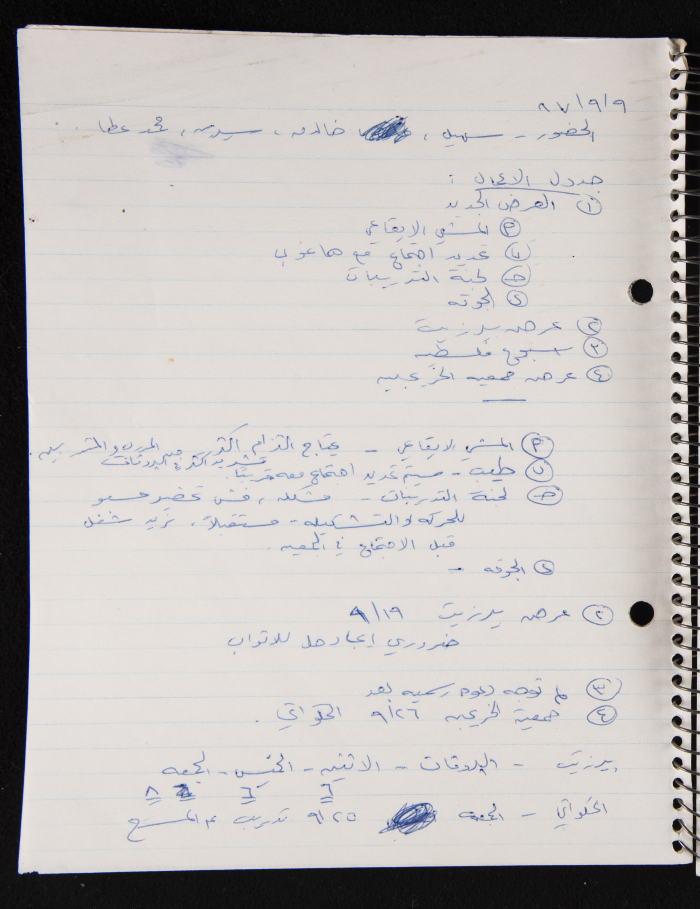 ٨٧/٩/٩
الحضور - سهيل ، خالد ، سيرين ، محمد عطا
جدول الاعمال :
١ العرض الجديد
أ المشي الايقاعي
ب تحديد اجتماع مع
ج لجنة التدريبات
د الجوقه
٢ عرض بيرزيت
٣ اسبوع فلسطين
٤ عرض جمعيه الخريجين
أ المشي الايقاعي - يحتاج التزام اكثر من المدرب والمتدربين .
تشديد اكثر في البروفات
ب طيب - سيتم تحديد اجتماع معه قريباً .
ج لجنة التدريبات - مشكله ، فش تحضير مسبق
للحركه والتشكيله - مستقبلاً ، نريد شغل
قبل الاجتماع في الجمعيه .
د الجوقه -
٢ عرض بيرزيت ٩/١٩
ضروري ايجاد حل للاثواب
٣ لم توجه دعوه رسميه بعد
٤ جمعية الخريجين ٩/٢٦ الحكواتي .
بيرزيت - البروفات - الاثنين - الخميس - الجمعه
٨ ٦ ٦
الحكواتي - الجمعه ٩/٢٥ تدريب ع المسرح